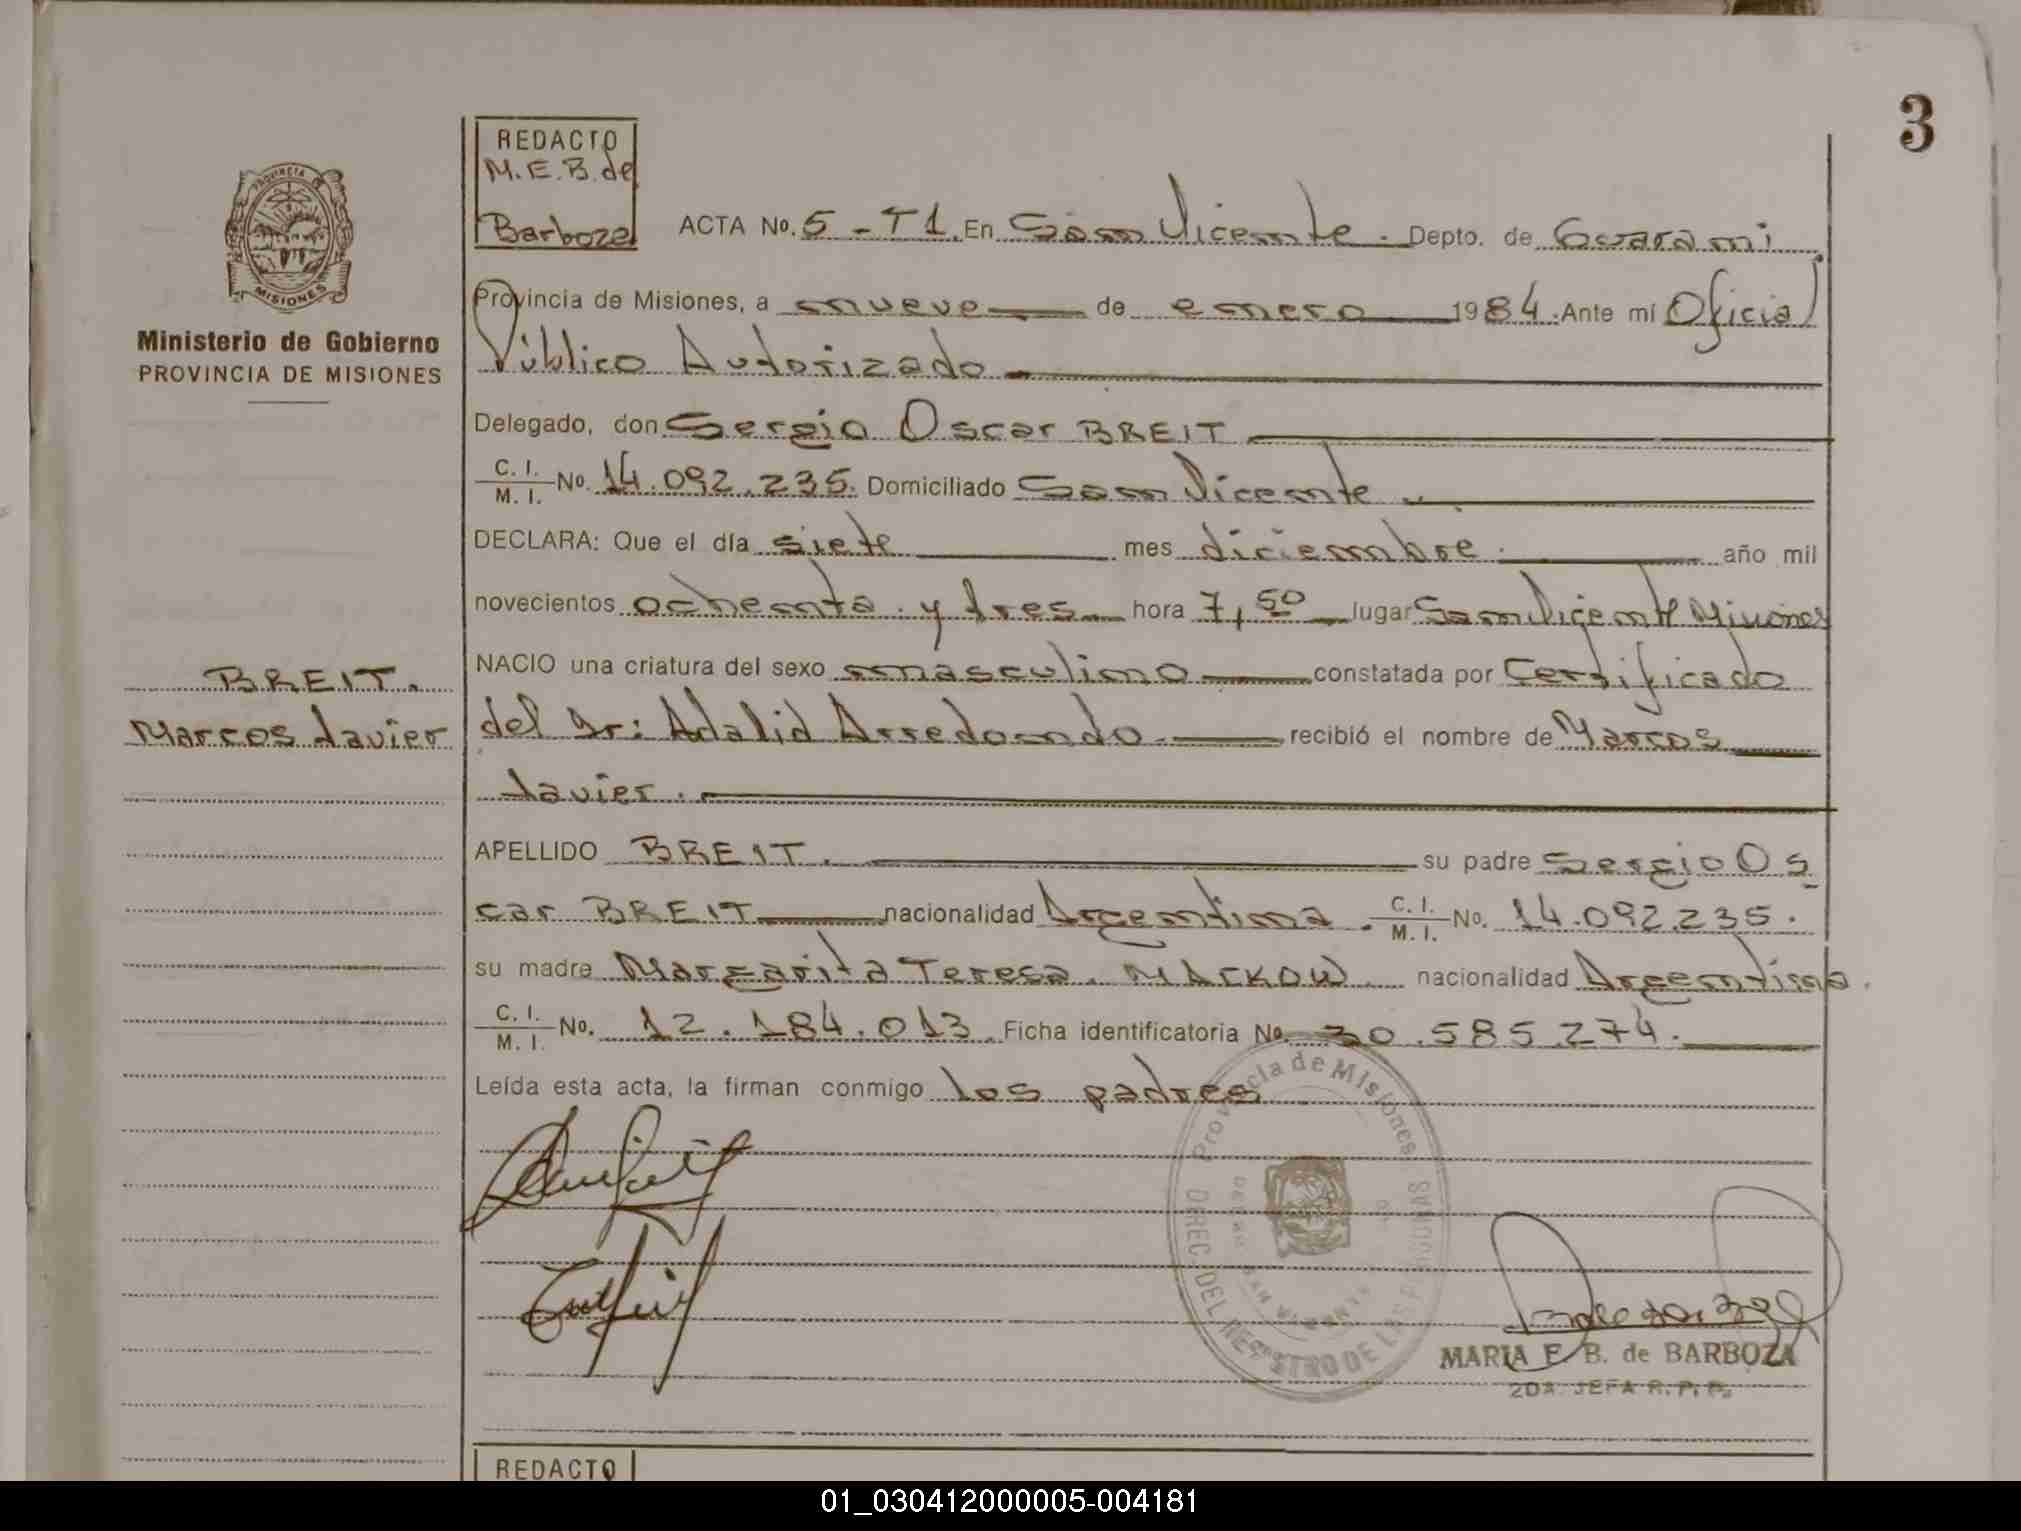 3
REDACTO
M.E.B. de
Barboza
PROVINCIA DE
MISIONES
Ministerio de Gobierno
PROVINCIA DE MISIONES
ACTA No. 5 - T1. En San Vicente. Depto. de Guaraní
Provincia de Misiones, a nueve de enero 1984. Ante mí Oficial
Público Autorizado
Delegado, don Sergio Oscar BREIT
C. I. / M. I. No. 14.092.235. Domiciliado San Vicente.
DECLARA: Que el día siete mes diciembre. año mil
novecientos ochenta y tres hora 7,50 lugar San Vicente Misiones
NACIO una criatura del sexo masculino constatada por Certificado
BREIT.
Marcos Javier
del Dr: Adalid Arredondo recibió el nombre de Marcos
Javier.
APELLIDO BREIT. su padre Sergio Os
car BREIT nacionalidad Argentina. C. I. / M. I. No. 14.092.235.
su madre Margarita Teresa MACKOW nacionalidad Argentina.
C. I. / M. I. No. 12.184.013. Ficha identificatoria No. 30.585.274.
Leída esta acta, la firman conmigo los padres
Provincia de Misiones
DIREC. DEL REGISTRO DE LAS PERSONAS
SAN VICENTE
MARIA E. B. de BARBOZA
2DA. JEFA R. P. P.
REDACTO
01_030412000005-004181